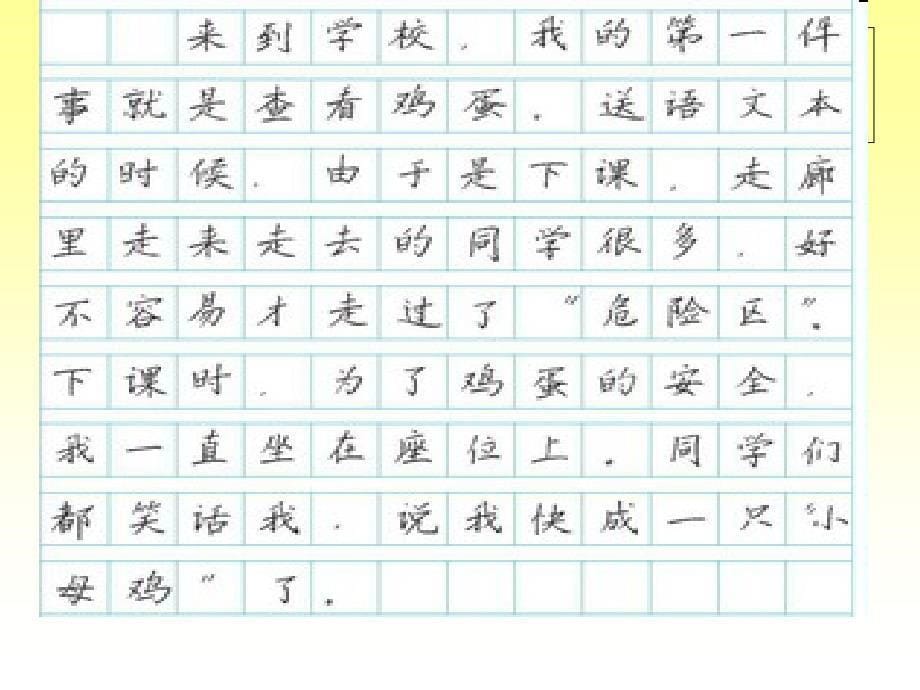 来到学校，我的第一件
事就是查看鸡蛋。送语文本
的时候，由于是下课，走廊
里走来走去的同学很多，好
不容易才走过了“危险区”。
下课时，为了鸡蛋的安全，
我一直坐在座位上。同学们
都笑话我，说我快成一只“小
母鸡”了。